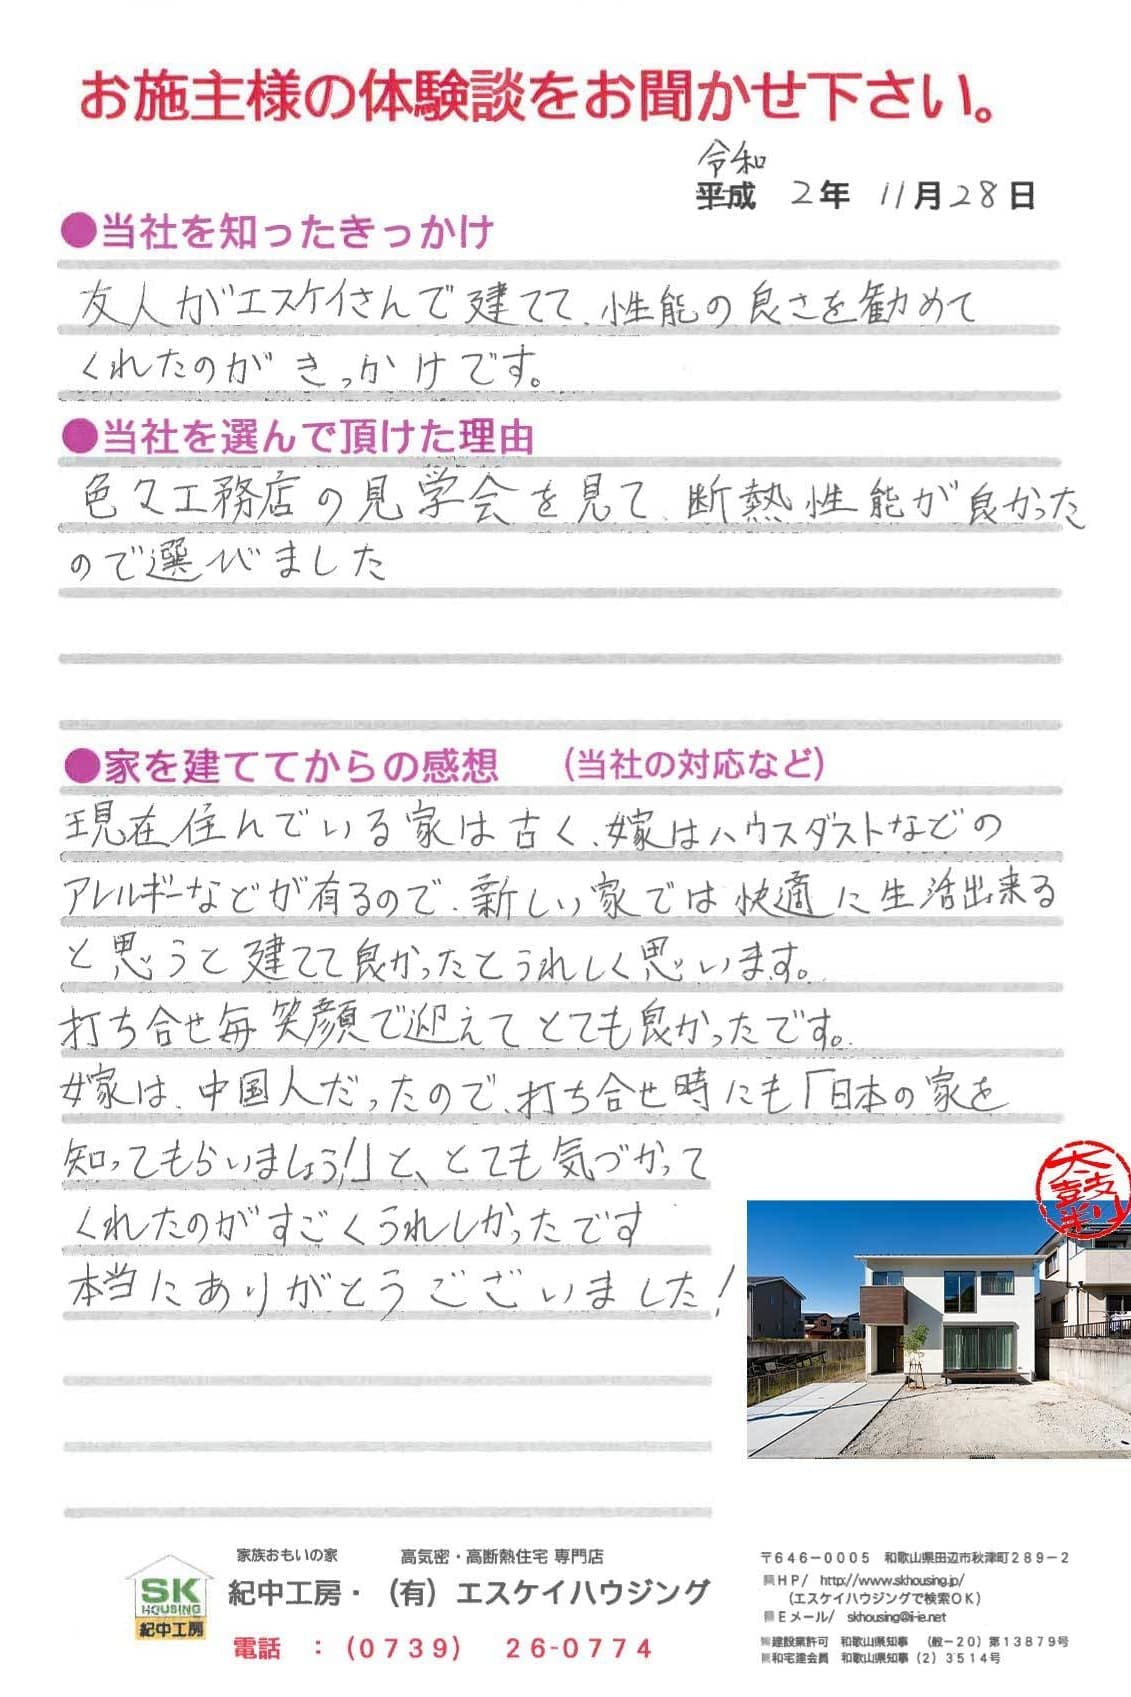 お施主様の体験談をお聞かせ下さい。
令和
平成 2年 11月28日
●当社を知ったきっかけ
友人がエスケイさんで建てて、性能の良さを勧めて
くれたのがきっかけです。
●当社を選んで頂けた理由
色々工務店の見学会を見て、断熱性能が良かった
ので選びました
●家を建ててからの感想 （当社の対応など）
現在住んでいる家は古く、嫁はハウスダストなどの
アレルギーなどが有るので、新しい家では快適に生活出来る
と思うと建てて良かったとうれしく思います。
打ち合せ毎笑顔で迎えてとても良かったです。
嫁は、中国人だったので、打ち合せ時にも「日本の家を
知ってもらいましょう！」と、とても気づかって
くれたのがすごくうれしかったです
本当にありがとうございました！
家族おもいの家 高気密・高断熱住宅 専門店
SK
HOUSING
紀中工房
紀中工房・（有）エスケイハウジング
電話 ：（0739） 26-0774
〒646－0005 和歌山県田辺市秋津町289－2
HP/ http://www.skhousing.jp/
（エスケイハウジングで検索OK）
Eメール/ skhousing@i-ie.net
建設業許可 和歌山県知事 （般－20）第13879号
和宅建会員 和歌山県知事（2）3514号